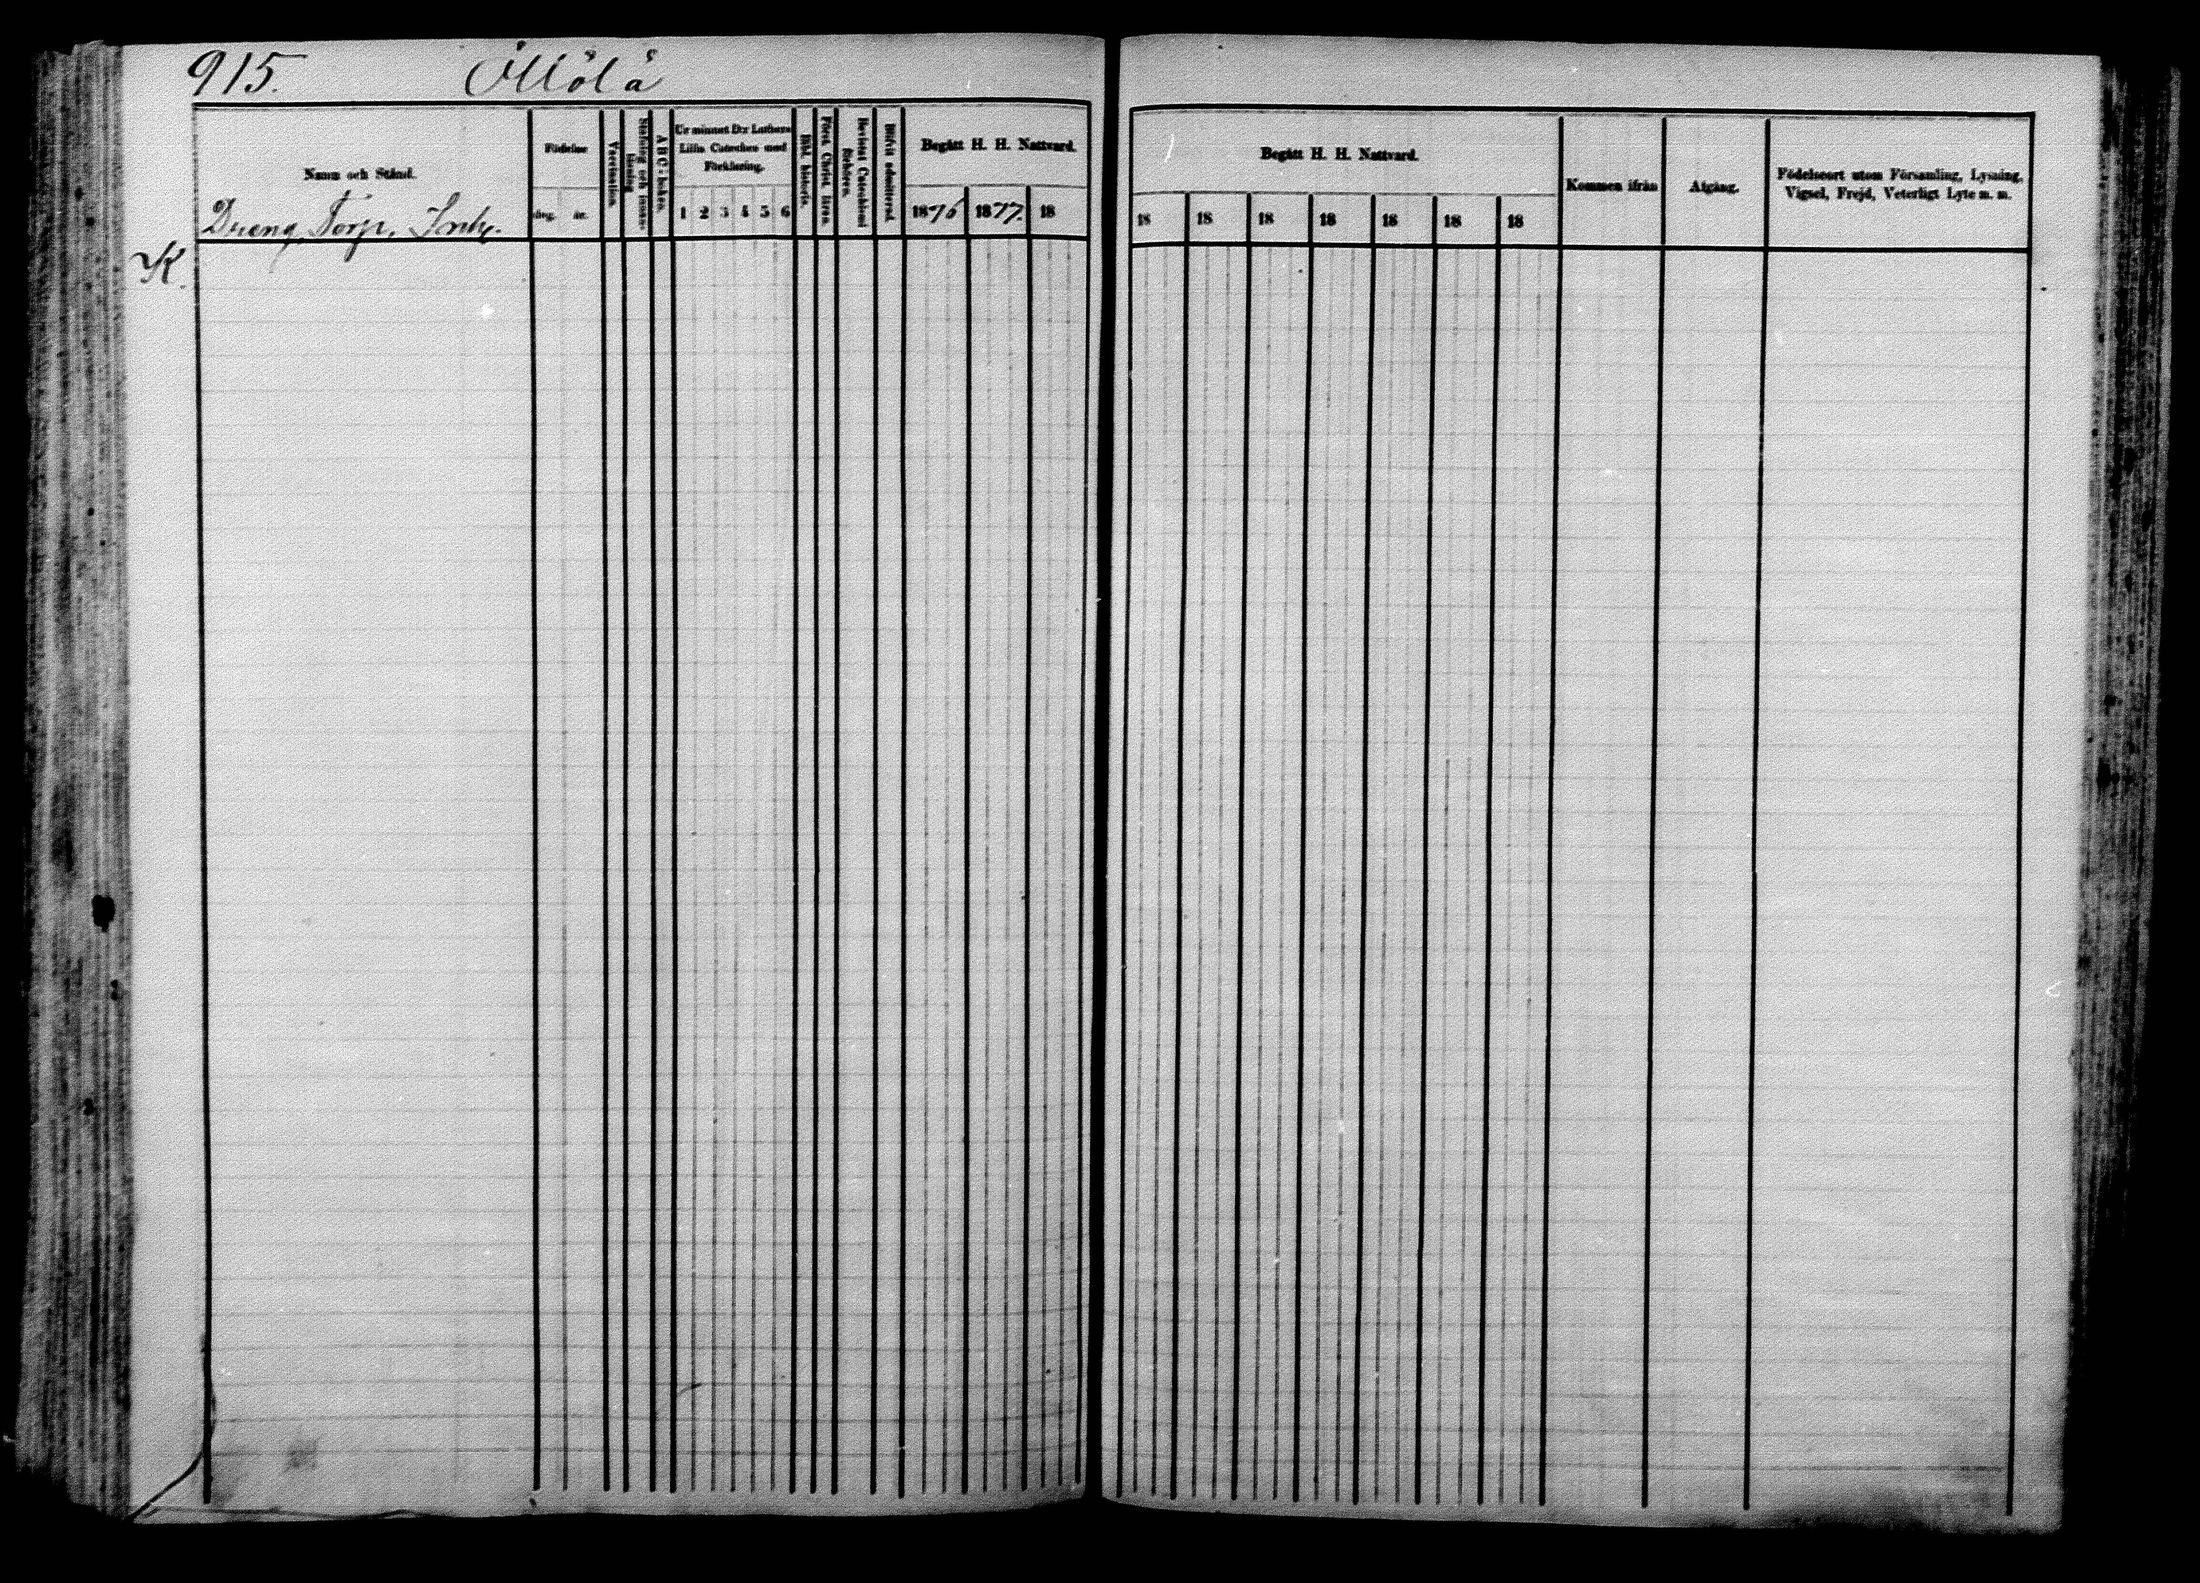 915. Ollölä
Namn och Stånd.
Dreng, Torp, Inh.
K.
Födelse
dag. år.
Vaccination.
Stafning och innan-
läsning
A B C-boken.
Ur minnet D:r Luthers
Lilla Cateches med
Förklaring.
1 2 3 4 5 6
Bibl. historie.
Förest. Christ. liren.
Bevistat Catechismi
förhören.
Blifvit admitterad.
Begått H. H. Nattvard.
1876 1877. 18
Begått H. H. Nattvard.
18 18 18 18 18 18 18
Kommen ifrån
Afgång.
Födelseort utom Församling, Lysning,
Vigsel, Frejd, Veterligt Lyte m. m.